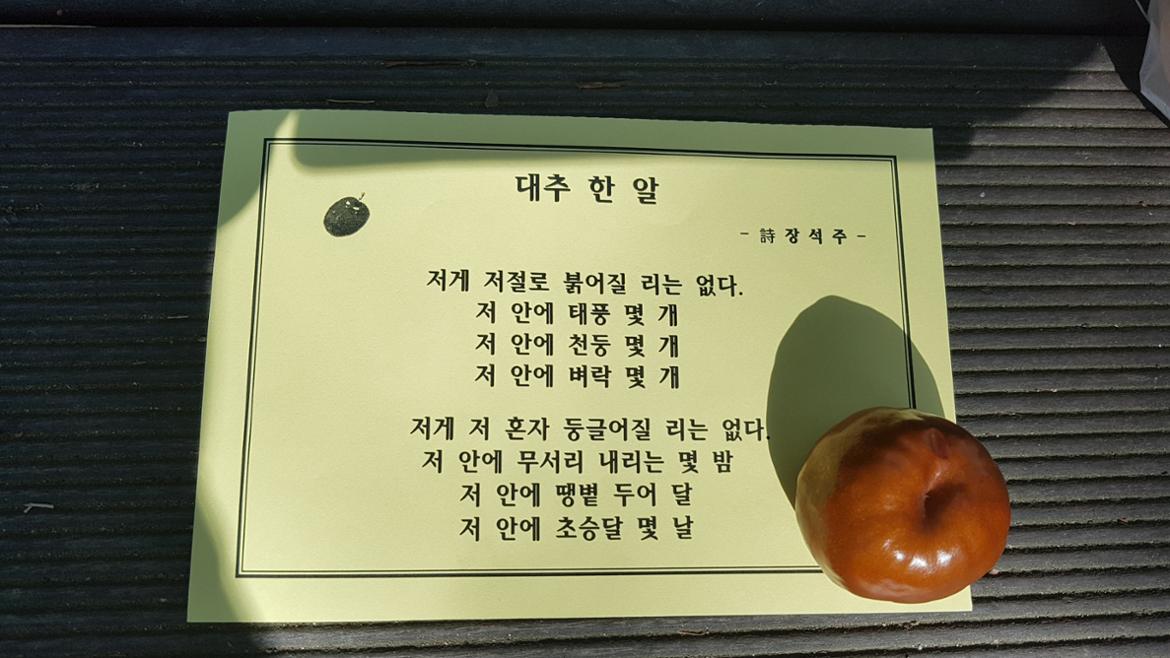 대추 한 알
- 詩 장석주 -
저게 저절로 붉어질 리는 없다.
저 안에 태풍 몇 개
저 안에 천둥 몇 개
저 안에 벼락 몇 개
저게 저 혼자 둥글어질 리는 없다.
저 안에 무서리 내리는 몇 밤
저 안에 땡볕 두어 달
저 안에 초승달 몇 날